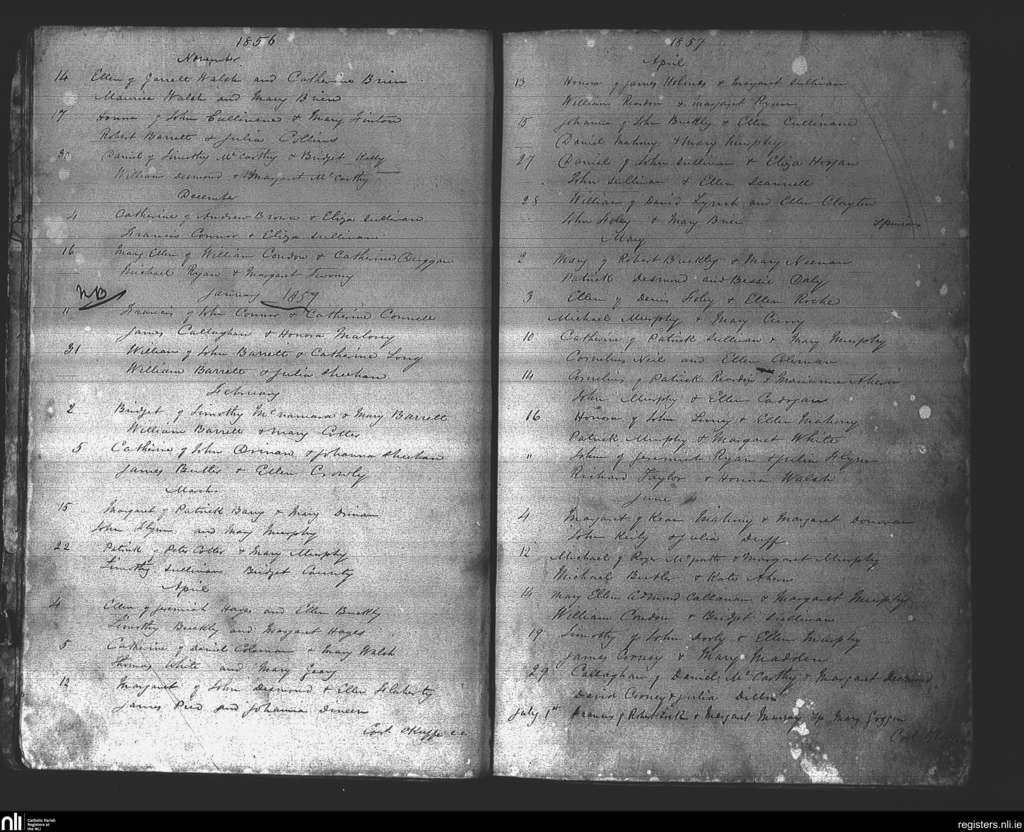 1856
November
14 Ellen of Garrett Walsh and Catherine Brien
Maurice Walsh and Mary Brien
17 Honora of John Cullinane & Mary Linton
Robert Barrett & Julia Collins
30 Daniel of Timothy McCarthy & Bridget Kelly
William Desmond & Margaret McCarthy
December
4 Catherine of Andrew Brown & Eliza Sullivan
Francis Connor & Eliza Sullivan
16 Mary Ellen of William Condon & Catherine Duggan
Michael Ryan & Margaret Twomy
January 1857
NB
" Francis of John Connor & Catherine Connell
James Callaghan & Honora Mahony
31 William of John Barrett & Catherine Long
William Barrett & Julia Sheehan
February
2 Bridget of Timothy McNamara & Mary Barrett
William Barrett & Mary Cotter
5 Catherine of John & Johanna Sheehan
James Butler & Ellen Crowly
March
15 Margaret of Patrick Barry & Mary
John Flynn and Mary Murphy
22 Patrick of Peter Cotter & Mary Murphy
Timothy Sullivan Bridget
April
4 Ellen of Jeremiah Hayes and Ellen Buckly
Timothy Buckly and Margaret Hayes
5 Catherine of Daniel Coleman & Mary Walsh
Thomas White and Mary Geary
12 Margaret of John Desmond & Ellen Flaherty
James and Johanna Dineen
O'Keeffe cc
1857
April
13 Honora of James Holmes & Margaret Sullivan
William Riordan & Margaret Ryan
15 Johanna of John Buckly & Ellen Cullinane
Daniel Mahony & Mary Murphy
27 Daniel of John Sullivan & Eliza Hogan
John Sullivan & Ellen Scannell
28 William of David Lynch and Ellen Clayton
John & Mary Brien Sponsors
May
2 Mary of Robert Buckly & Mary Neenan
Patrick Desmond and Bessie Daly
3 Ellen of Denis Foley & Ellen Roche
Michael Murphy & Mary
10 Catherine of Patrick Sullivan & Mary Murphy
Cornelius Neil and Ellen Coleman
14 Cornelius of Patrick Riordan & Marianne Ahern
John Murphy & Ellen Cadogan
16 Honora of John & Ellen Mahony
Patrick Murphy & Margaret White
" John of Jeremiah Ryan & Julia Flynn
Richard Taylor & Honora Walsh
June
4 Margaret of Kean Mahony & Margaret Donovan
John Kiely & Julia Duff
12 Michael of Roger McGrath & Margaret Murphy
Michael Butler & Kate Ahern
14 Mary Ellen Edmond Callanan & Margaret Murphy
William Condon & Bridget Sullivan
19 Timothy of John Dooly & Ellen Murphy
James Cooney & Mary Madden
29 Callaghan of Daniel McCarthy & Margaret Desmond
David Cooney & Julia Dillon
July 1st Francis of Robert & Margaret Murray Sp. Mary Goggin
nli
Catholic Parish
Registers at
the NLI
registers.nli.ie